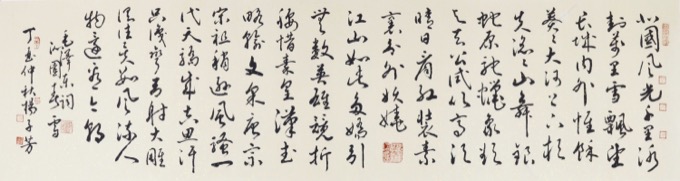 北國風光千里冰
封萬里雪飄望
長城內外惟餘
莽莽大河上下頓
失滔滔山舞銀
蛇原馳蠟象欲
與天公試比高須
晴日看紅裝素
裹分外妖嬈
江山如此多嬌引
無數英雄競折
腰惜秦皇漢武
略輸文采唐宗
宋祖稍遜風騷一
代天驕成吉思汗
只識彎弓射大雕
俱往矣數風流人
物還看今朝
毛澤東詞
沁園春雪
丁亥仲秋楊子芳